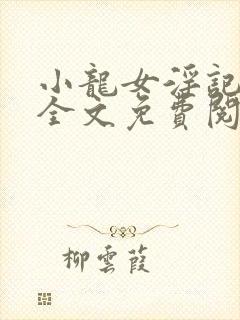 小龍女淫記
全文免費閱
柳雲葭